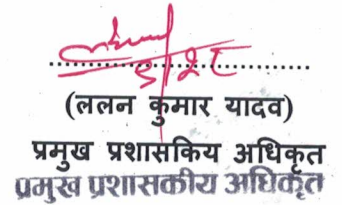 ५/२८
(ललन कुमार यादव)
प्रमुख प्रशासकिय अधिकृत
प्रमुख प्रशासकीय अधिकृत